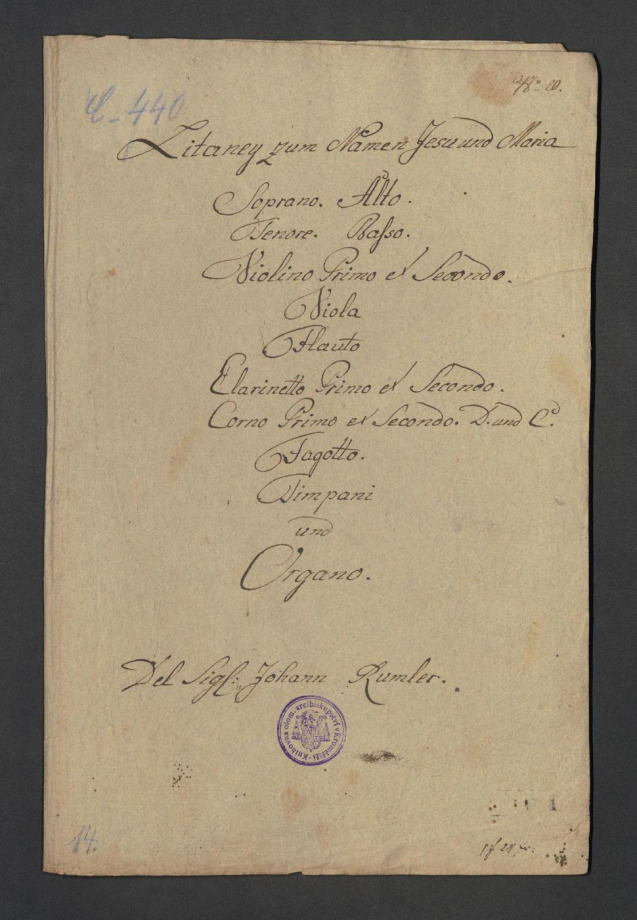 C–440
Litaney zum Namen Jesu und Maria
Soprano. Alto.
Tenore. Basso.
Violino Primo et Secondo.
Viola
Flauto
Clarinetto Primo et Secondo.
Corno Primo et Secondo. D. und C.
Fagotto.
Timpani
und
Organo.
Del Sigl: Johann Rumler.
Knihovna olom. arcibiskupství v Kroměříži
14.